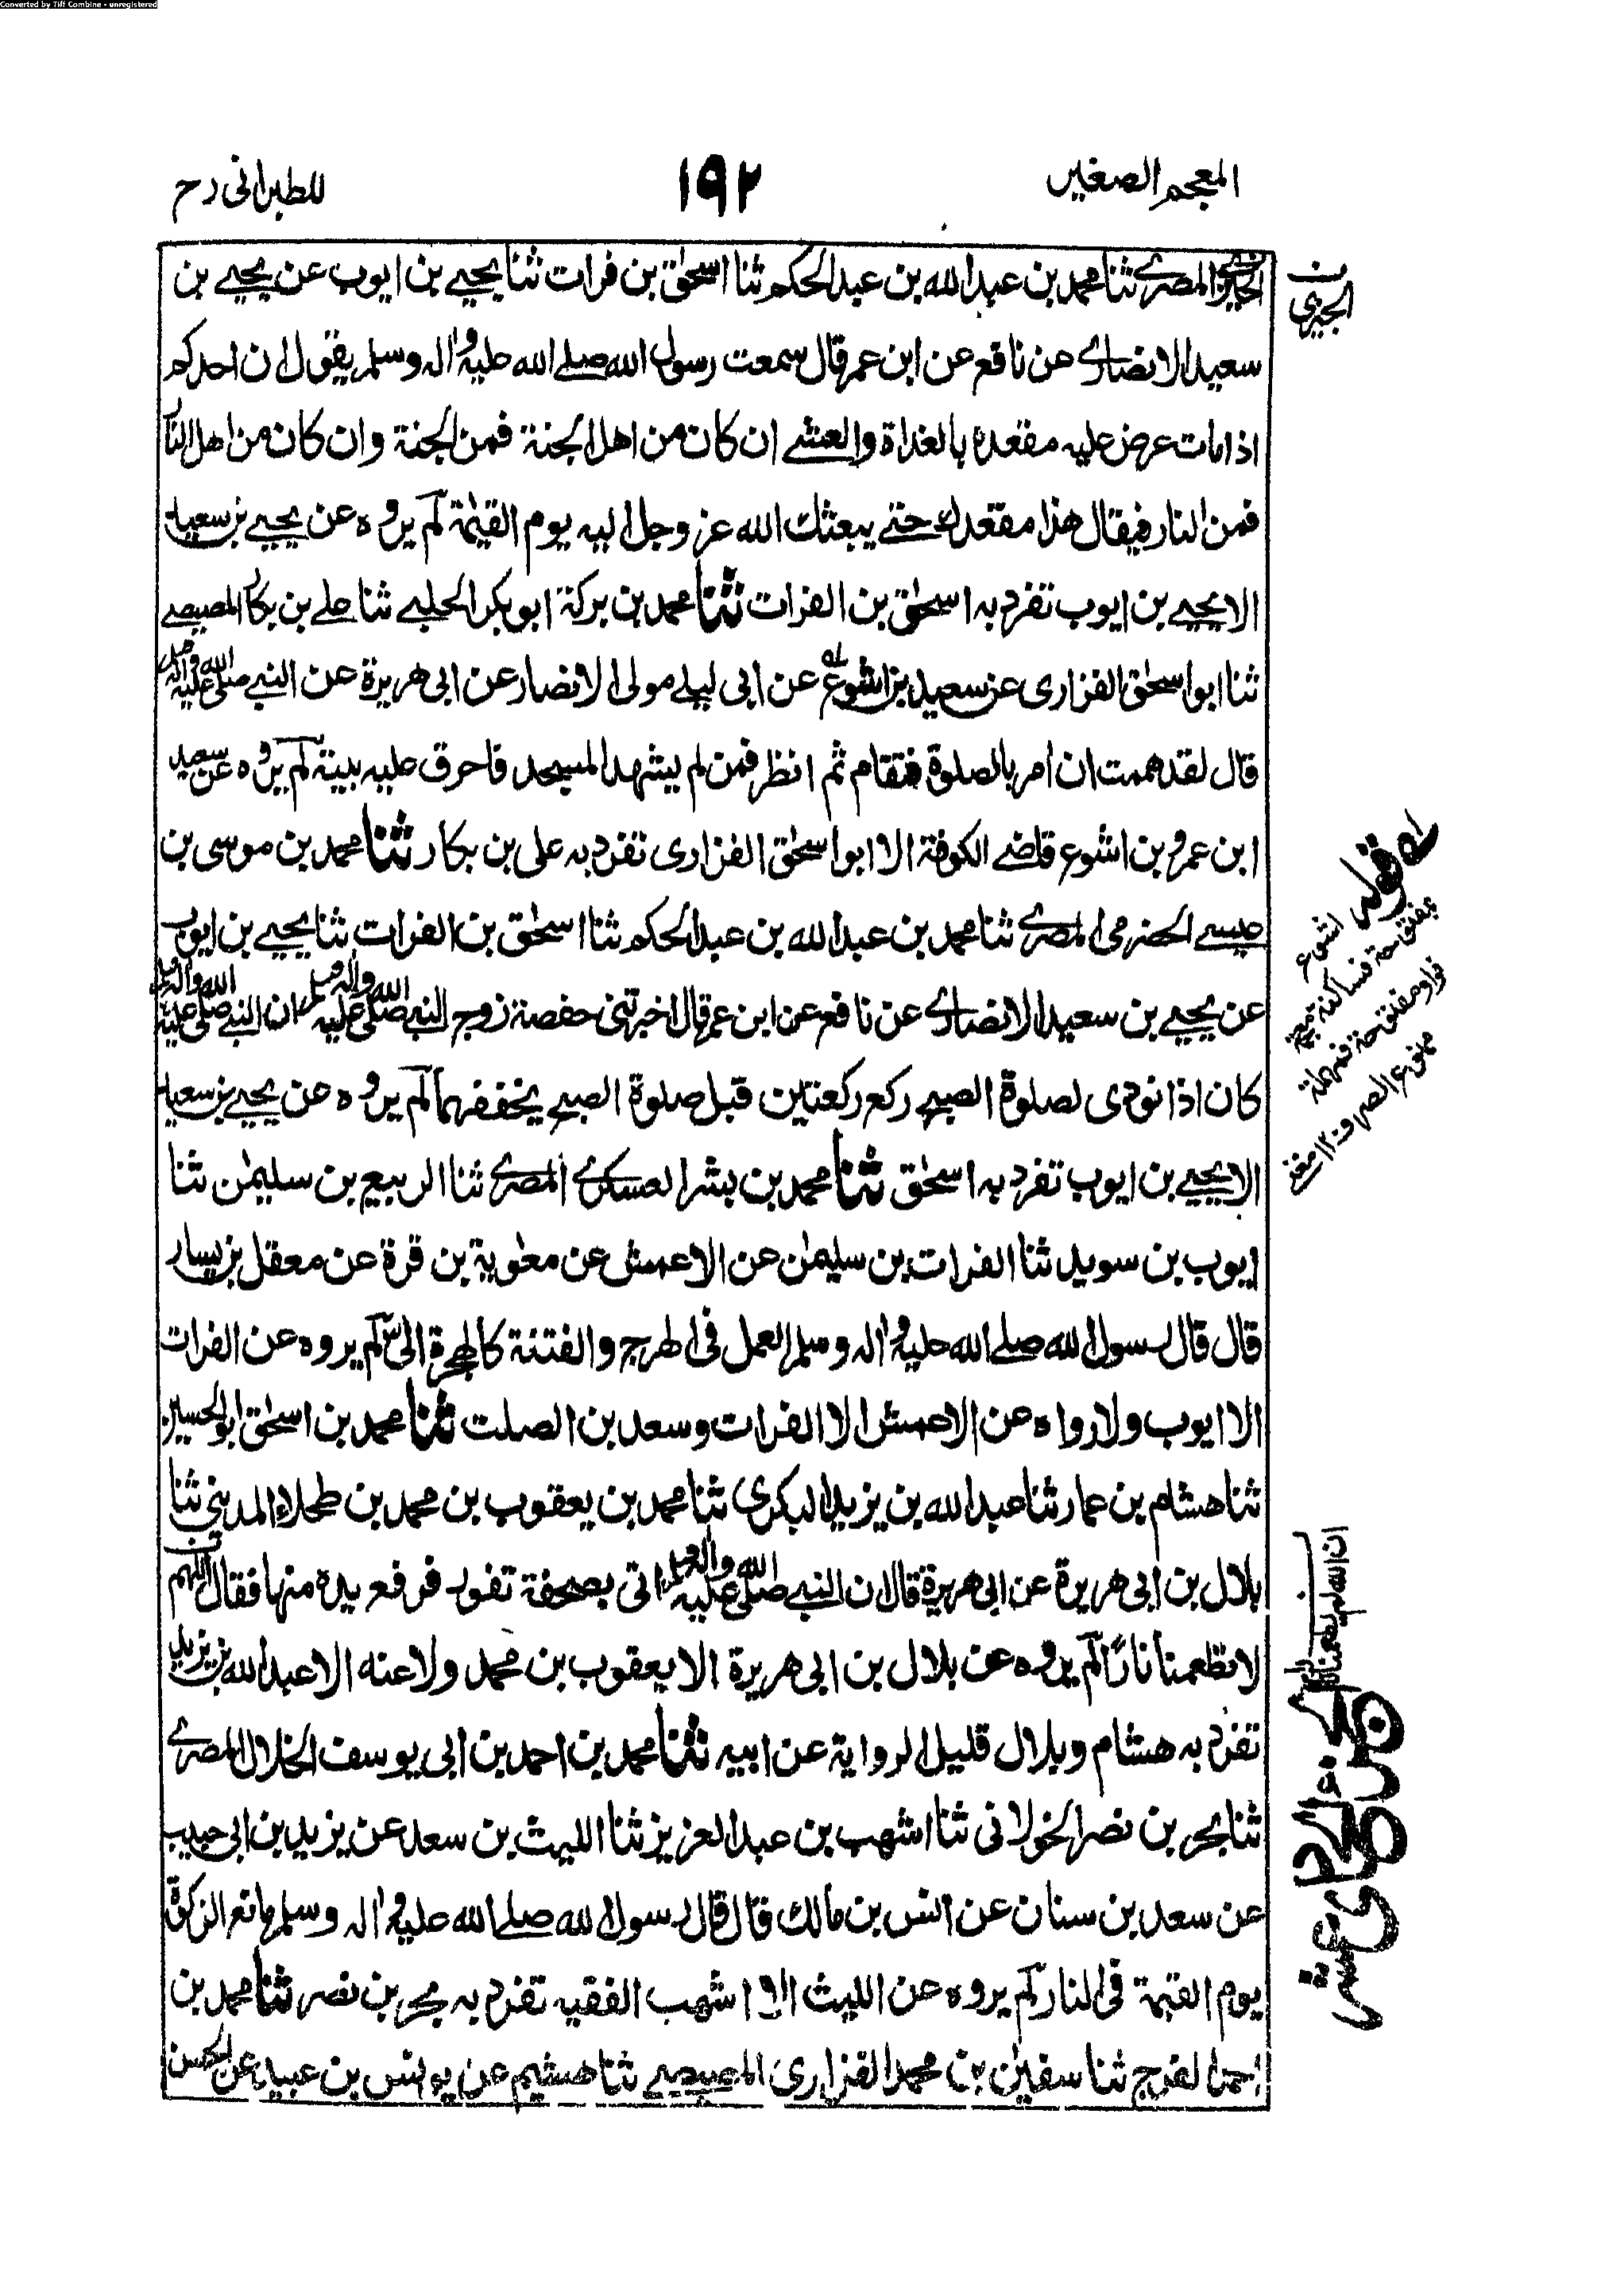 Converted by Tiff Combine - unregistered
المعجم الصغير
١٩٢
للطبرانی رح
المصرے ثنا محمد بن عبدالله بن عبدالحکم ثنا اسحٰق بن فرات ثنا یحیے بن ایوب عن یحیے بن
الجیزی
سعید الانصارے عن نافع عن ابن عمر قال سمعت رسول الله صلے الله علیه واٰله وسلم یقول ان احدکم
اذا مات عرض علیه مقعده بالغداة والعشے ان کان من اهل الجنة فمن الجنة وان کان من اهل النار
فمن النار فیقال هذا مقعدك حتے یبعثك الله عز وجل الیه یوم القیٰمة لم یروه عن یحیے بن سعید
الا یحیے بن ایوب تفرد به اسحٰق بن الفرات ثنا محمد بن برکة ابو بکر الحلبے ثنا علے بن بکار المصیصے
ثنا ابو اسحٰق الفزاری عن سعید بن اشوع عن ابی لیلے مولی الانصار عن ابی هریرة عن النبے صلی الله علیه واٰله وسلم
قال لقد هممت ان اٰمر بالصلوة فتقام ثم انظر فمن لم یشهد المسجد فاحرق علیه بیته لم یروه عن سعید
ابن عمرو بن اشوع قاضے الکوفة الا ابو اسحٰق الفزاری تفرد به علی بن بکار ثنا محمد بن موسی بن
عیسے الحضرمی المصرے ثنا محمد بن عبدالله بن عبدالحکم ثنا اسحٰق بن الفرات ثنا یحیے بن ایوب
عن یحیے بن سعید الانصارے عن نافع عن ابن عمر قال اخبرتنی حفصة زوج النبے صلی الله علیه واٰله وسلم ان النبے صلی الله علیه واٰله وسلم
کان اذا نودی لصلوة الصبح رکع رکعتین قبل صلوة الصبح یخففهما لم یروه عن یحیے بن سعید
الا یحیے بن ایوب تفرد به اسحٰق ثنا محمد بن بشر العسکرے المصرے ثنا الربیع بن سلیمٰن ثنا
ایوب بن سوید ثنا الفرات بن سلیمٰن عن الاعمش عن معٰویة بن قرة عن معقل بن یسار
قال قال رسول الله صلے الله علیه واٰله وسلم العمل فی الهرج والفتنة کالهجرة الیّ لم یروه عن الفرات
الا ایوب ولا رواه عن الاعمش الا الفرات وسعد بن الصلت ثنا محمد بن اسحٰق ابو الحسین
ثنا هشام بن عمار ثنا عبدالله بن یزید البکری ثنا محمد بن یعقوب بن محمد بن طحلاء المدینی ثنا
بلال بن ابی هریرة عن ابی هریرة قال ان النبے صلی الله علیه واٰله وسلم اتی بصحفة تفور فرفع یده منها فقال اللهم
لا تطعمنا نارًا لم یروه عن بلال بن ابی هریرة الا یعقوب بن محمد ولا عنه الا عبدالله بن یزید
تفرد به هشام وبلال قلیل الروایة عن ابیه ثنا محمد بن احمد بن ابی یوسف الخلال المصرے
ثنا بحر بن نصر الخولانی ثنا اشهب بن عبدالعزیز ثنا اللیث بن سعد عن یزید بن ابی حبیب
عن سعد بن سنان عن انس بن مالك قال قال رسول الله صلے الله علیه واٰله وسلم مانع الزکوة
یوم القیٰمة فی النار لم یروه عن اللیث الا اشهب الفقیه تفرد به بحر بن نصر ثنا محمد بن
احمد الفرج ثنا سفیٰن بن محمد الفزاری المصیصے ثنا هشیم عن یونس بن عبید عن الحسن
له قوله اشوع
بمفتوحة فساکنة معجمة
فواو مفتوحة فمهملة
ممنوع الصرف ١٢ مغنے
ان الله لم یطعمنا نارا